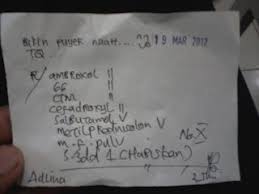 Bikin puyer naatt.... 19 MAR 2012
TQ...
R/ ambroxol ||
GG ||
CTM ||
cefadroxyl ||
Salbutamol V
Metilprednisolon V No. X
m.f. pulv V
S 3dd 1 (Habiskan)
Adlina 2 Thn